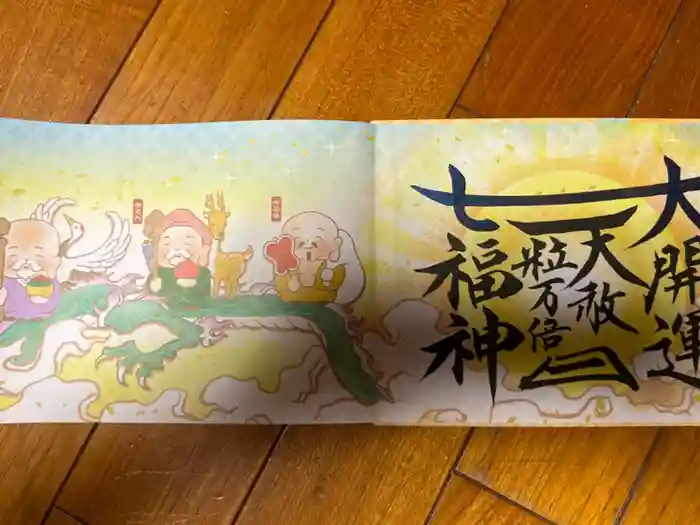 大開運
天赦
一粒万倍日
七福神